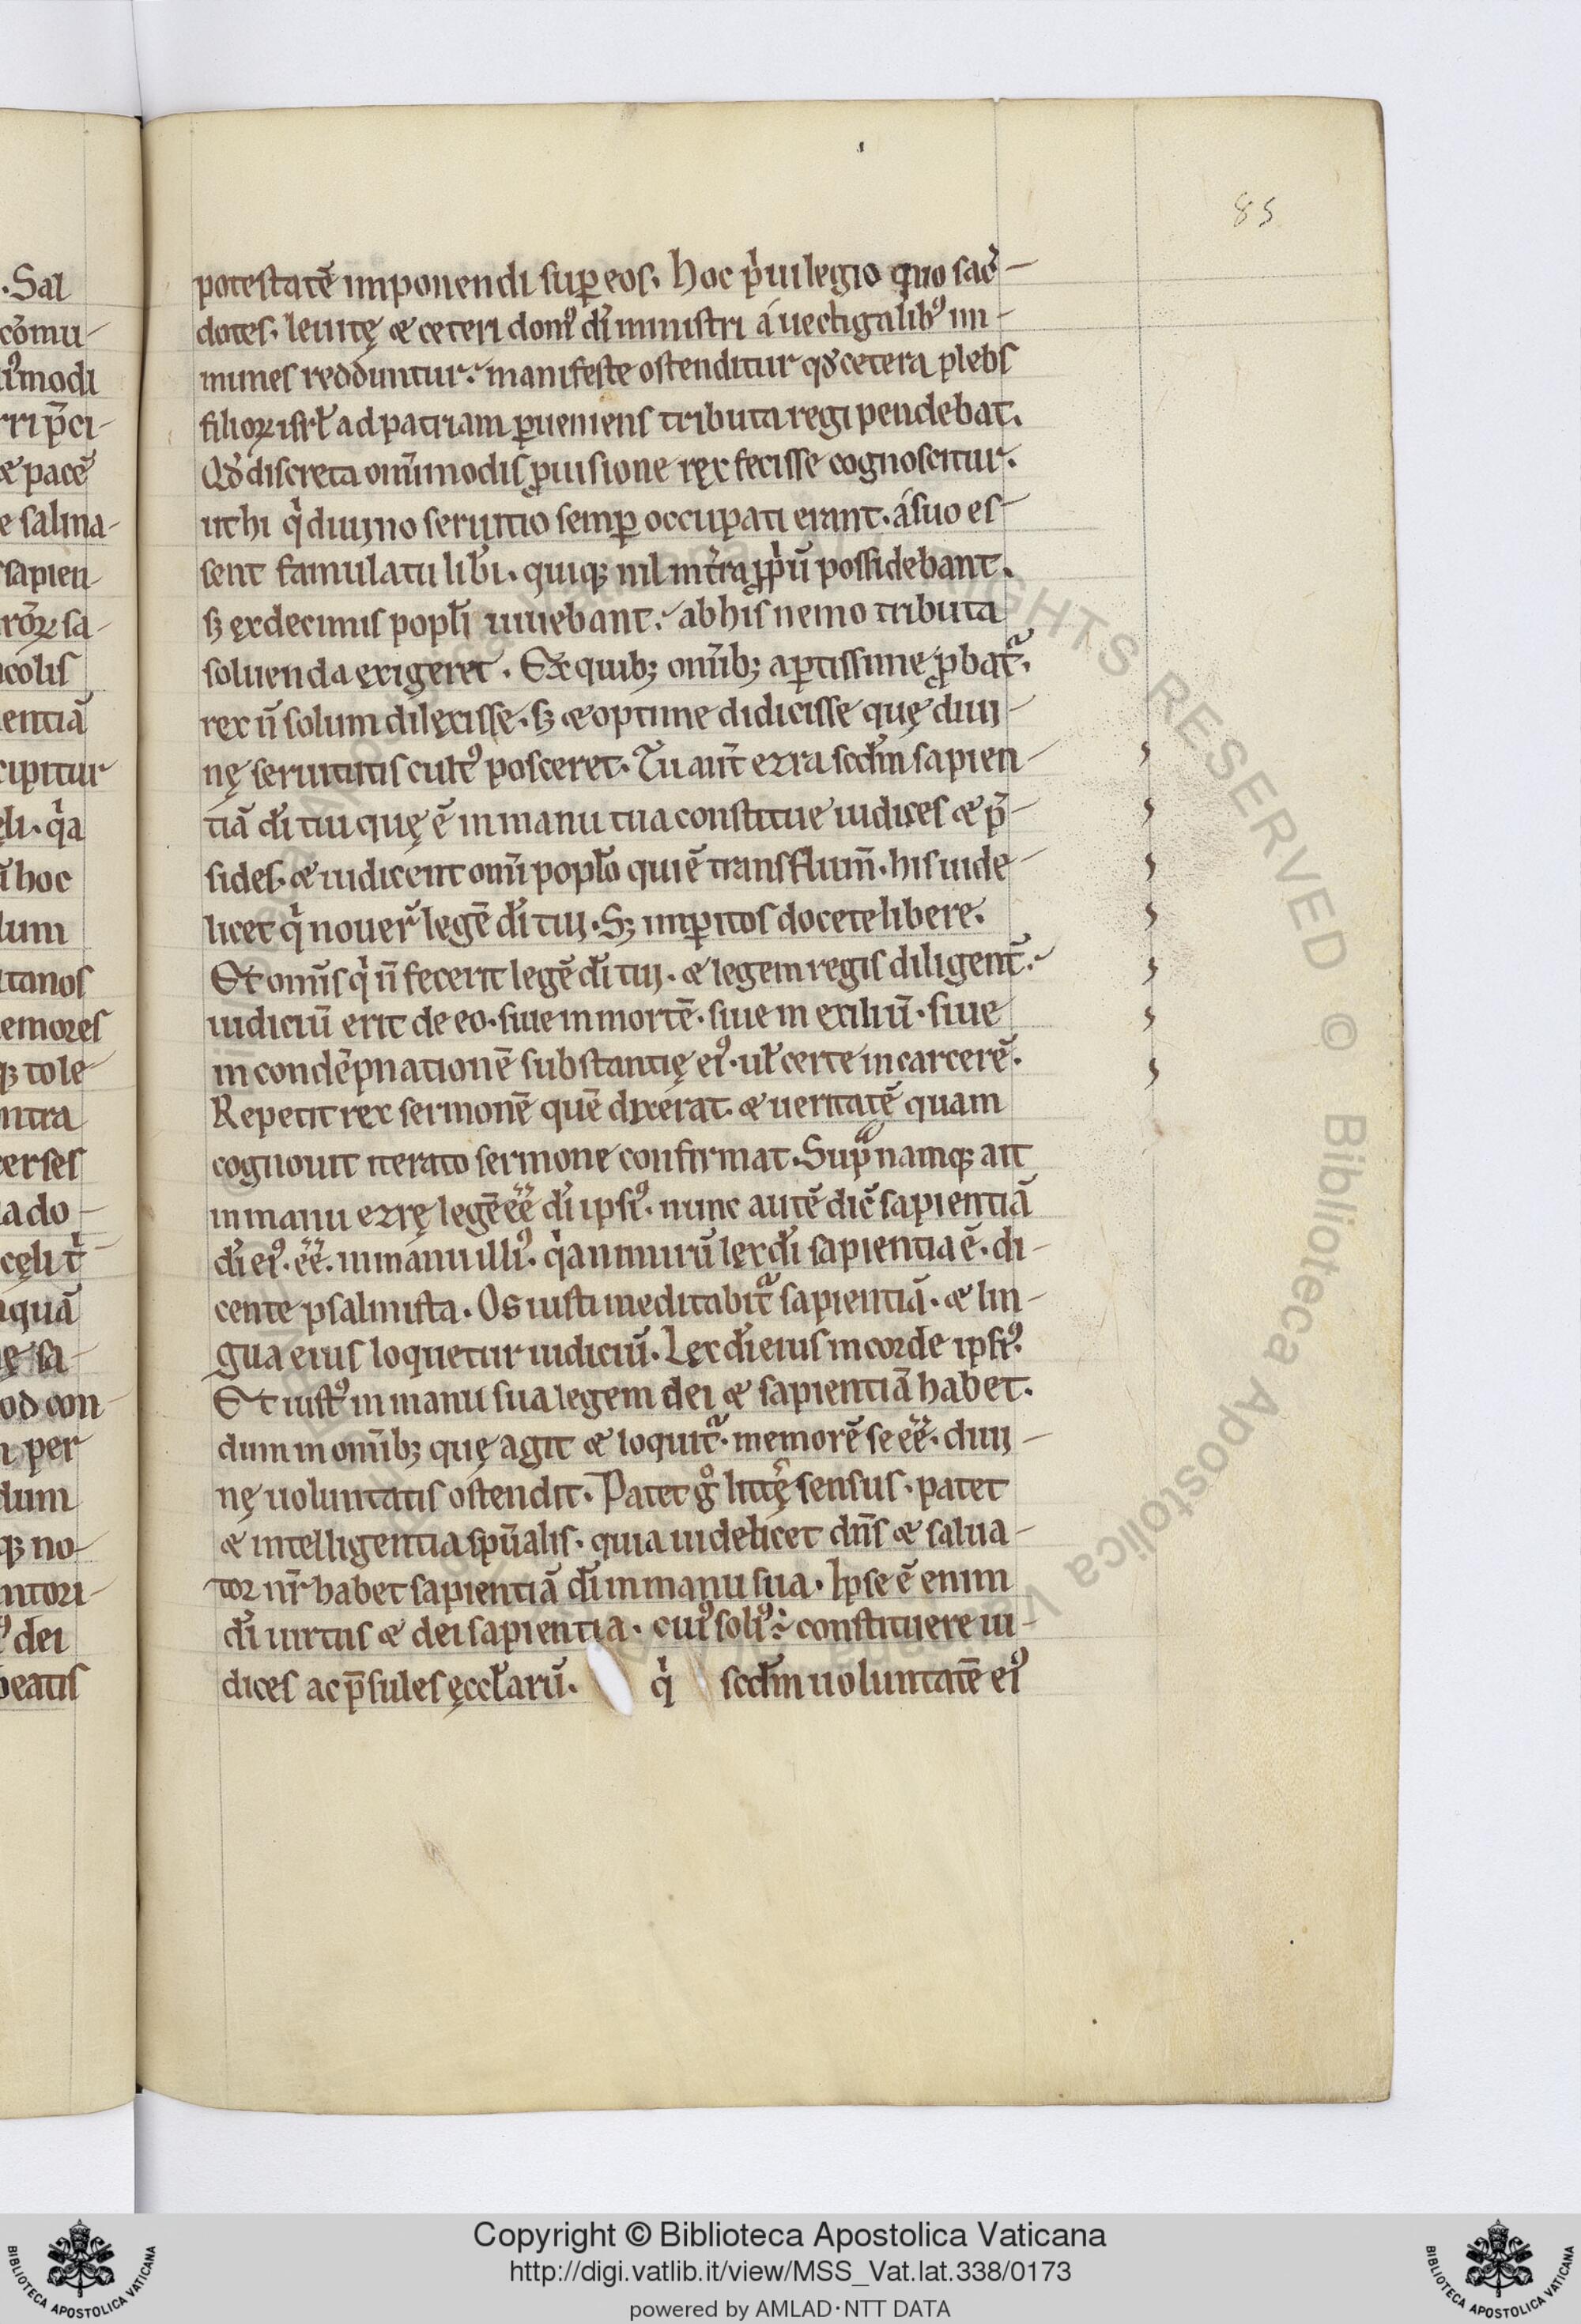 85
potestatē imponendi suꝑ eos. hoc p̍uilegio quo sac̄
dotes. leuitę æ ceteri domꝰ dī ministri á uectigalibꝰ im-
munes redduntur. manifeste ostenditur qđ cetera plebs
filioꝝ isrł ad patriam ꝑueniens tributa regi pendebat.
Qđ discreta omīmodis ꝓuisione rex fecisse cognoscitur.
ut hi q̍ diuino seruitio semꝑ occupati erant. á suo es-
sent famulatu libi̍. quiqꝫ nil in t̍ra ꝓp̍ū possidebant.
sꝫ ex decimis popłi uiuebant. ab his nemo tributa
soluenda exigeret. Ex quibꝫ omībꝫ aꝑtissime ꝓbat᷑.
rex ñ solum dilexisse. sꝫ æ optime didicisse quę diui-
nę seruitutis cultꝰ posceret. Tu aut̄ ezra scđm sapien-
tiā dī tui quę ē in manu tua constitue iudices æ p̄-
sides. æ iudicent omī popło qui ē trans flum̄. his uide-
licet q̍ nouer̄ legē dī tui. Sꝫ imꝑitos docete libere.
Et omīs q̍ ñ fecerit legē dī tui. æ legem regis diligent̄.
iudiciū erit de eo. siue in mortē. siue in exiliū. siue
in condēpnationē substantię eiꝰ. uł certe in carcerē.
Repetit rex sermonē quē dixerat. æ ueritatē quam
cognouit iterato sermone confirmat. Supͣ namqꝫ ait
in manu ezrę legē ēē dī ipsiꝰ. nunc autē dic̄ sapientiā
dī eiꝰ. ēē. in manu illiꝰ. q̍a nimirū lex dī sapientia ē. di-
cente psalmista. Os iusti meditabit᷑ sapientiā. æ lin-
gua eius loquetur iudiciū. Lex dī eius in corde ipsiꝰ.
Et iustꝰ in manu sua legem dei æ sapientiā habet.
dum in omībꝫ quę agit æ loquit᷑. memorē se ēē. diui-
nę uoluntatis ostendit. Patet gͦ litt̄ę sensus. patet
æ intelligentia spūalis. quia uidelicet dn̄s æ salua-
tor nr̄ habet sapientiā dī in manu sua. Ipse ē enim
dī uirtus æ dei sapientia. cuiꝰ soliꝰ ÷ constituere iu-
dices ac p̄sules ęccłarū. q̍ scđm uoluntatē eiꝰ
Copyright © Biblioteca Apostolica Vaticana
http://digi.vatlib.it/view/MSS_Vat.lat.338/0173
powered by AMLAD·NTT DATA